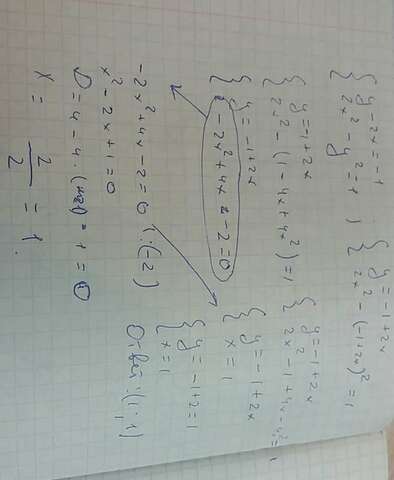 { y - 2x = -1
2x² - y² = 1 )
{ y = -1 + 2x
2x² - (-1+2x)² = 1
{ y = -1 + 2x
2x² - (1 - 4x + 4x²) = 1
{ y = -1 + 2x
2x² - 1 + 4x - 4x² = 1
{ y = -1 + 2x
-2x² + 4x - 2 = 0
{ y = -1 + 2x
x = 1
-2x² + 4x - 2 = 0 | : (-2)
x² - 2x + 1 = 0
{ y = -1 + 2 = 1
x = 1
x = 2/2 = 1.
Ответ: (1;1)